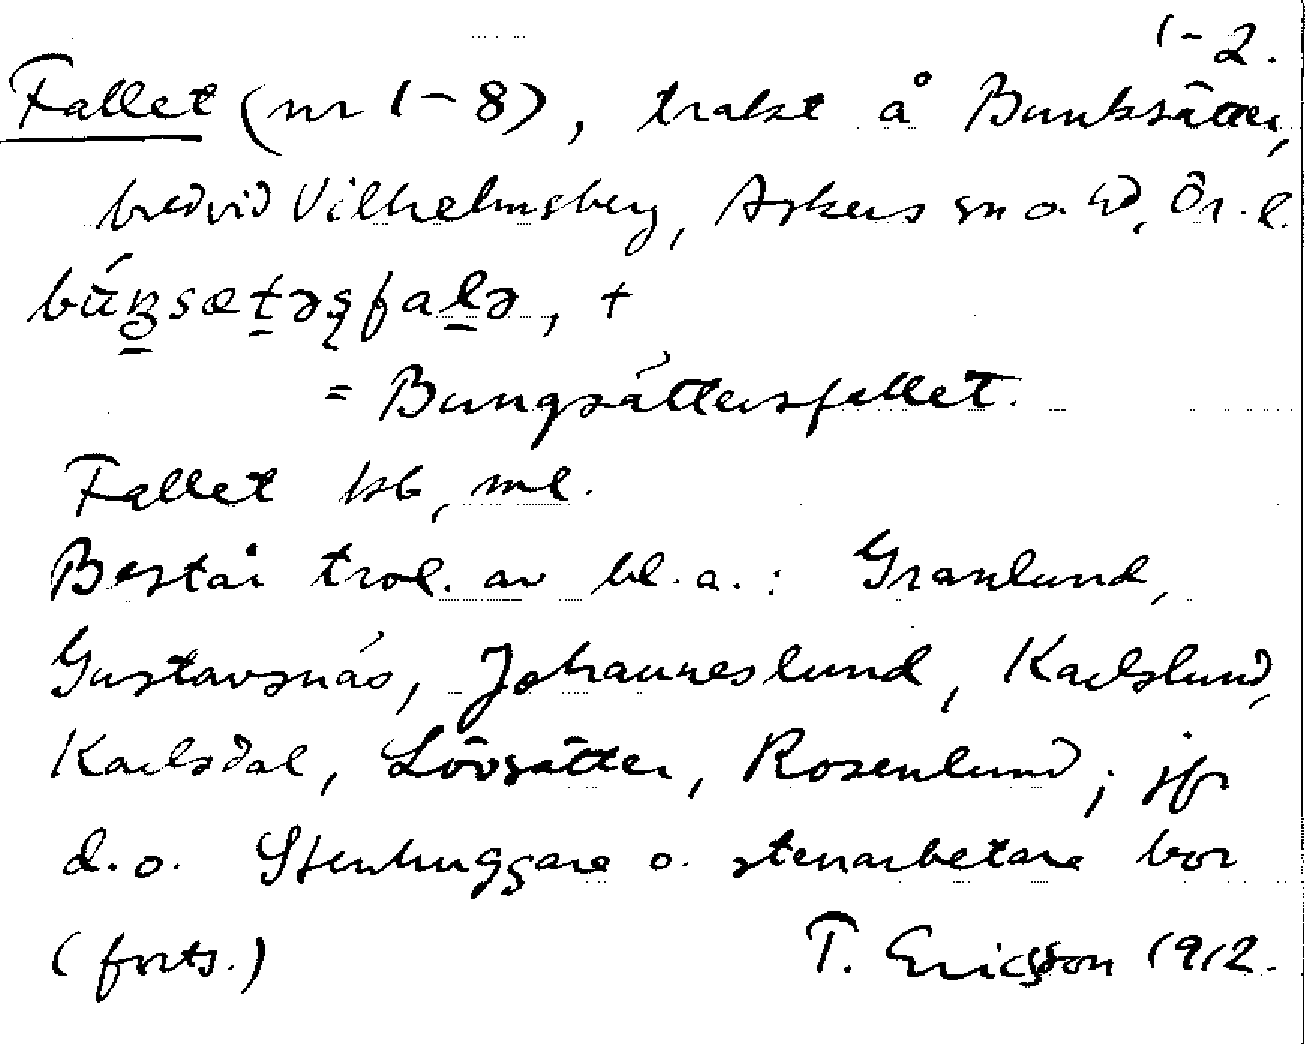 1-2.
Fallet (nr 1-8), trakt å Bunksätter,
bredvid Vilhelmsberg, Askers sn o. hd, Ör. l.
= Bungsättersfallet.
Fallet kb, ml.
Består trol. av bl.a.: Granlund,
Gustavsnäs, Johanneslund, Karlslund,
Karlsdal, Lövsätter, Rosenlund; jfr
d.o. Stenhuggare o. stenarbetare bor
(forts.) T. Ericsson 1912.